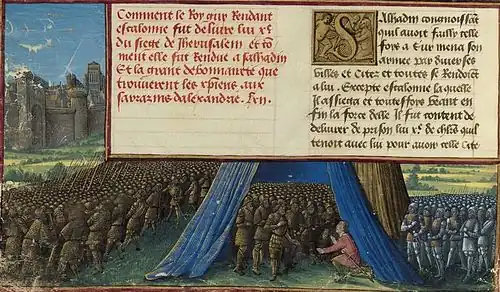 Comment le Roy guy Rendant
escalonne fut deliure luy x.e
du siege de Jherusalem et co
ment elle fut Rendue a salhadin
Et la grant debonnairete que
trouuerent les xpiens aux
sarrazins dalexandrie. Xen.
Salhadin congnoissant
quil auoit failly celle
foys a Sur mena son
armee par diuerses
villes et Citez et toutes se Rendoient
a luy. Excepte escalonne la quelle
Il assiega et toutesfoys beant en
fin la force delle Il fut content de
deliurer de prison luy x.e de chlrs quil
tenoit auec luy pour auoir celle Cite